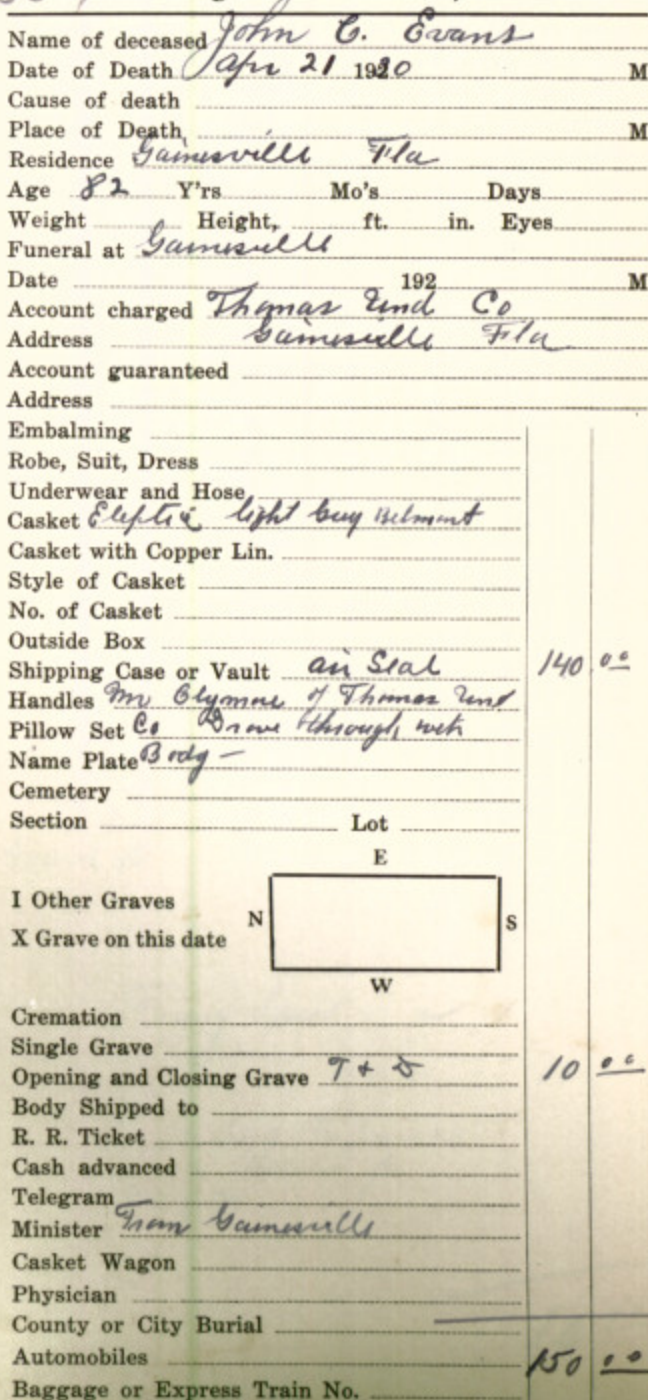 Name of deceased John C. Evans
Date of Death Apr 21 1930 M
Cause of death
Place of Death, M
Residence Gainesville Fla
Age 82 Y'rs Mo's Days
Weight Height, ft. in. Eyes
Funeral at Gainesville
Date 192 M
Account charged Thomas Und Co
Address Gainesville Fla
Account guaranteed
Address
Embalming
Robe, Suit, Dress
Underwear and Hose
Casket light Belmont
Casket with Copper Lin.
Style of Casket
No. of Casket
Outside Box
Shipping Case or Vault air Seal 140 00
Handles Mr of Thomas Und
Pillow Set Co Drove through with
Name Plate Body -
Cemetery
Section Lot
E
I Other Graves
N S
X Grave on this date
W
Cremation
Single Grave
Opening and Closing Grave T + D 10 00
Body Shipped to
R. R. Ticket
Cash advanced
Telegram
Minister From Gainesville
Casket Wagon
Physician
County or City Burial
Automobiles 150 00
Baggage or Express Train No.